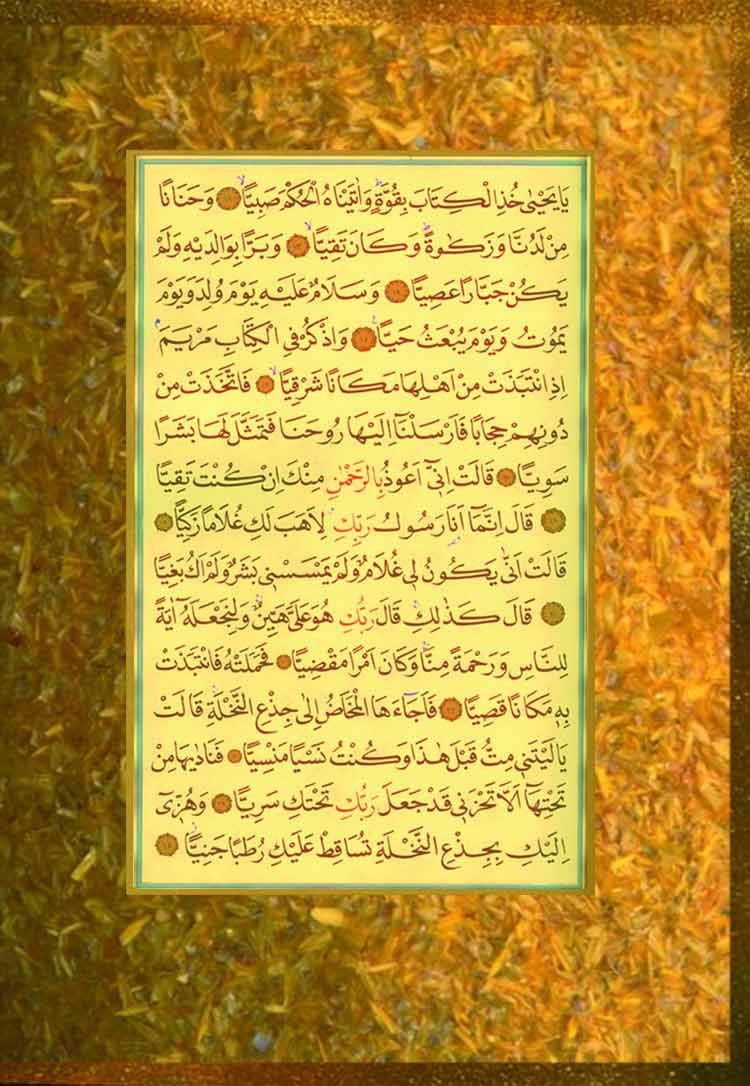 يَا يَحْيٰى خُذِ الْكِتَابَ بِقُوَّةٍ وَاٰتَيْنَاهُ الْحُكْمَ صَبِيًّا وَحَنَانًا
مِنْ لَدُنَّا وَزَكٰوةً وَكَانَ تَقِيًّا وَبَرًّا بِوَالِدَيْهِ وَلَمْ
يَكُنْ جَبَّارًا عَصِيًّا وَسَلَامٌ عَلَيْهِ يَوْمَ وُلِدَ وَيَوْمَ
يَمُوتُ وَيَوْمَ يُبْعَثُ حَيًّا وَاذْكُرْ فِي الْكِتَابِ مَرْيَمَ
اِذِ انْتَبَذَتْ مِنْ اَهْلِهَا مَكَانًا شَرْقِيًّا فَاتَّخَذَتْ مِنْ
دُونِهِمْ حِجَابًا فَاَرْسَلْنَٓا اِلَيْهَا رُوحَنَا فَتَمَثَّلَ لَهَا بَشَرًا
سَوِيًّا قَالَتْ اِنّ۪ٓي اَعُوذُ بِالرَّحْمٰنِ مِنْكَ اِنْ كُنْتَ تَقِيًّا
قَالَ اِنَّمَٓا اَنَا رَسُولُ رَبِّكِ لِاَهَبَ لَكِ غُلَامًا زَكِيًّا
قَالَتْ اَنّٰى يَكُونُ ل۪ي غُلَامٌ وَلَمْ يَمْسَسْن۪ي بَشَرٌ وَلَمْ اَكُ بَغِيًّا
قَالَ كَذٰلِكِ قَالَ رَبُّكِ هُوَ عَلَيَّ هَيِّنٌ وَلِنَجْعَلَهُٓ اٰيَةً
لِلنَّاسِ وَرَحْمَةً مِنَّا وَكَانَ اَمْرًا مَقْضِيًّا فَحَمَلَتْهُ فَانْتَبَذَتْ
بِه۪ مَكَانًا قَصِيًّا فَاَجَٓاءَهَا الْمَخَاضُ اِلٰى جِذْعِ النَّخْلَةِ قَالَتْ
يَا لَيْتَن۪ي مِتُّ قَبْلَ هٰذَا وَكُنْتُ نَسْيًا مَنْسِيًّا فَنَادٰيهَا مِنْ
تَحْتِهَٓا اَلَّا تَحْزَن۪ي قَدْ جَعَلَ رَبُّكِ تَحْتَكِ سَرِيًّا وَهُزّ۪ٓي
اِلَيْكِ بِجِذْعِ النَّخْلَةِ تُسَاقِطْ عَلَيْكِ رُطَبًا جَنِيًّا